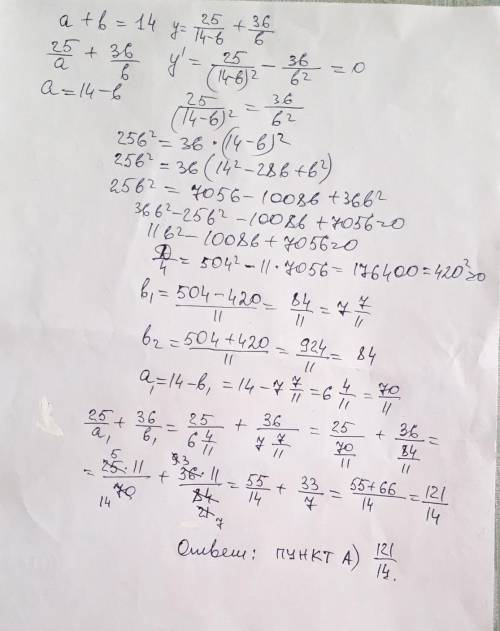 a + b = 14  y = 25/(14-b) + 36/b
25/a + 36/b  y' = 25/(14-b)² - 36/b² = 0
a = 14 - b  25/(14-b)² = 36/b²
25b² = 36 · (14-b)²
25b² = 36 (14² - 28b + b²)
25b² = 7056 - 1008b + 36b²
36b² - 25b² - 1008b + 7056=0
11b² - 1008b + 7056=0
D/4 = 504² - 11·7056 = 176400 = 420² >0
b₁ = (504-420)/11 = 84/11 = 7 7/11
b₂ = (504+420)/11 = 924/11 = 84
a₁ = 14 - b₁ = 14 - 7 7/11 = 6 4/11 = 70/11
25/a₁ + 36/b₁ = 25/(6 4/11) + 36/(7 7/11) = 25/(70/11) + 36/(84/11) =
= 25·11/70 + 36·11/84 = 55/14 + 33/7 = (55+66)/14 = 121/14
Ответ: ПУНКТ А) 121/14.